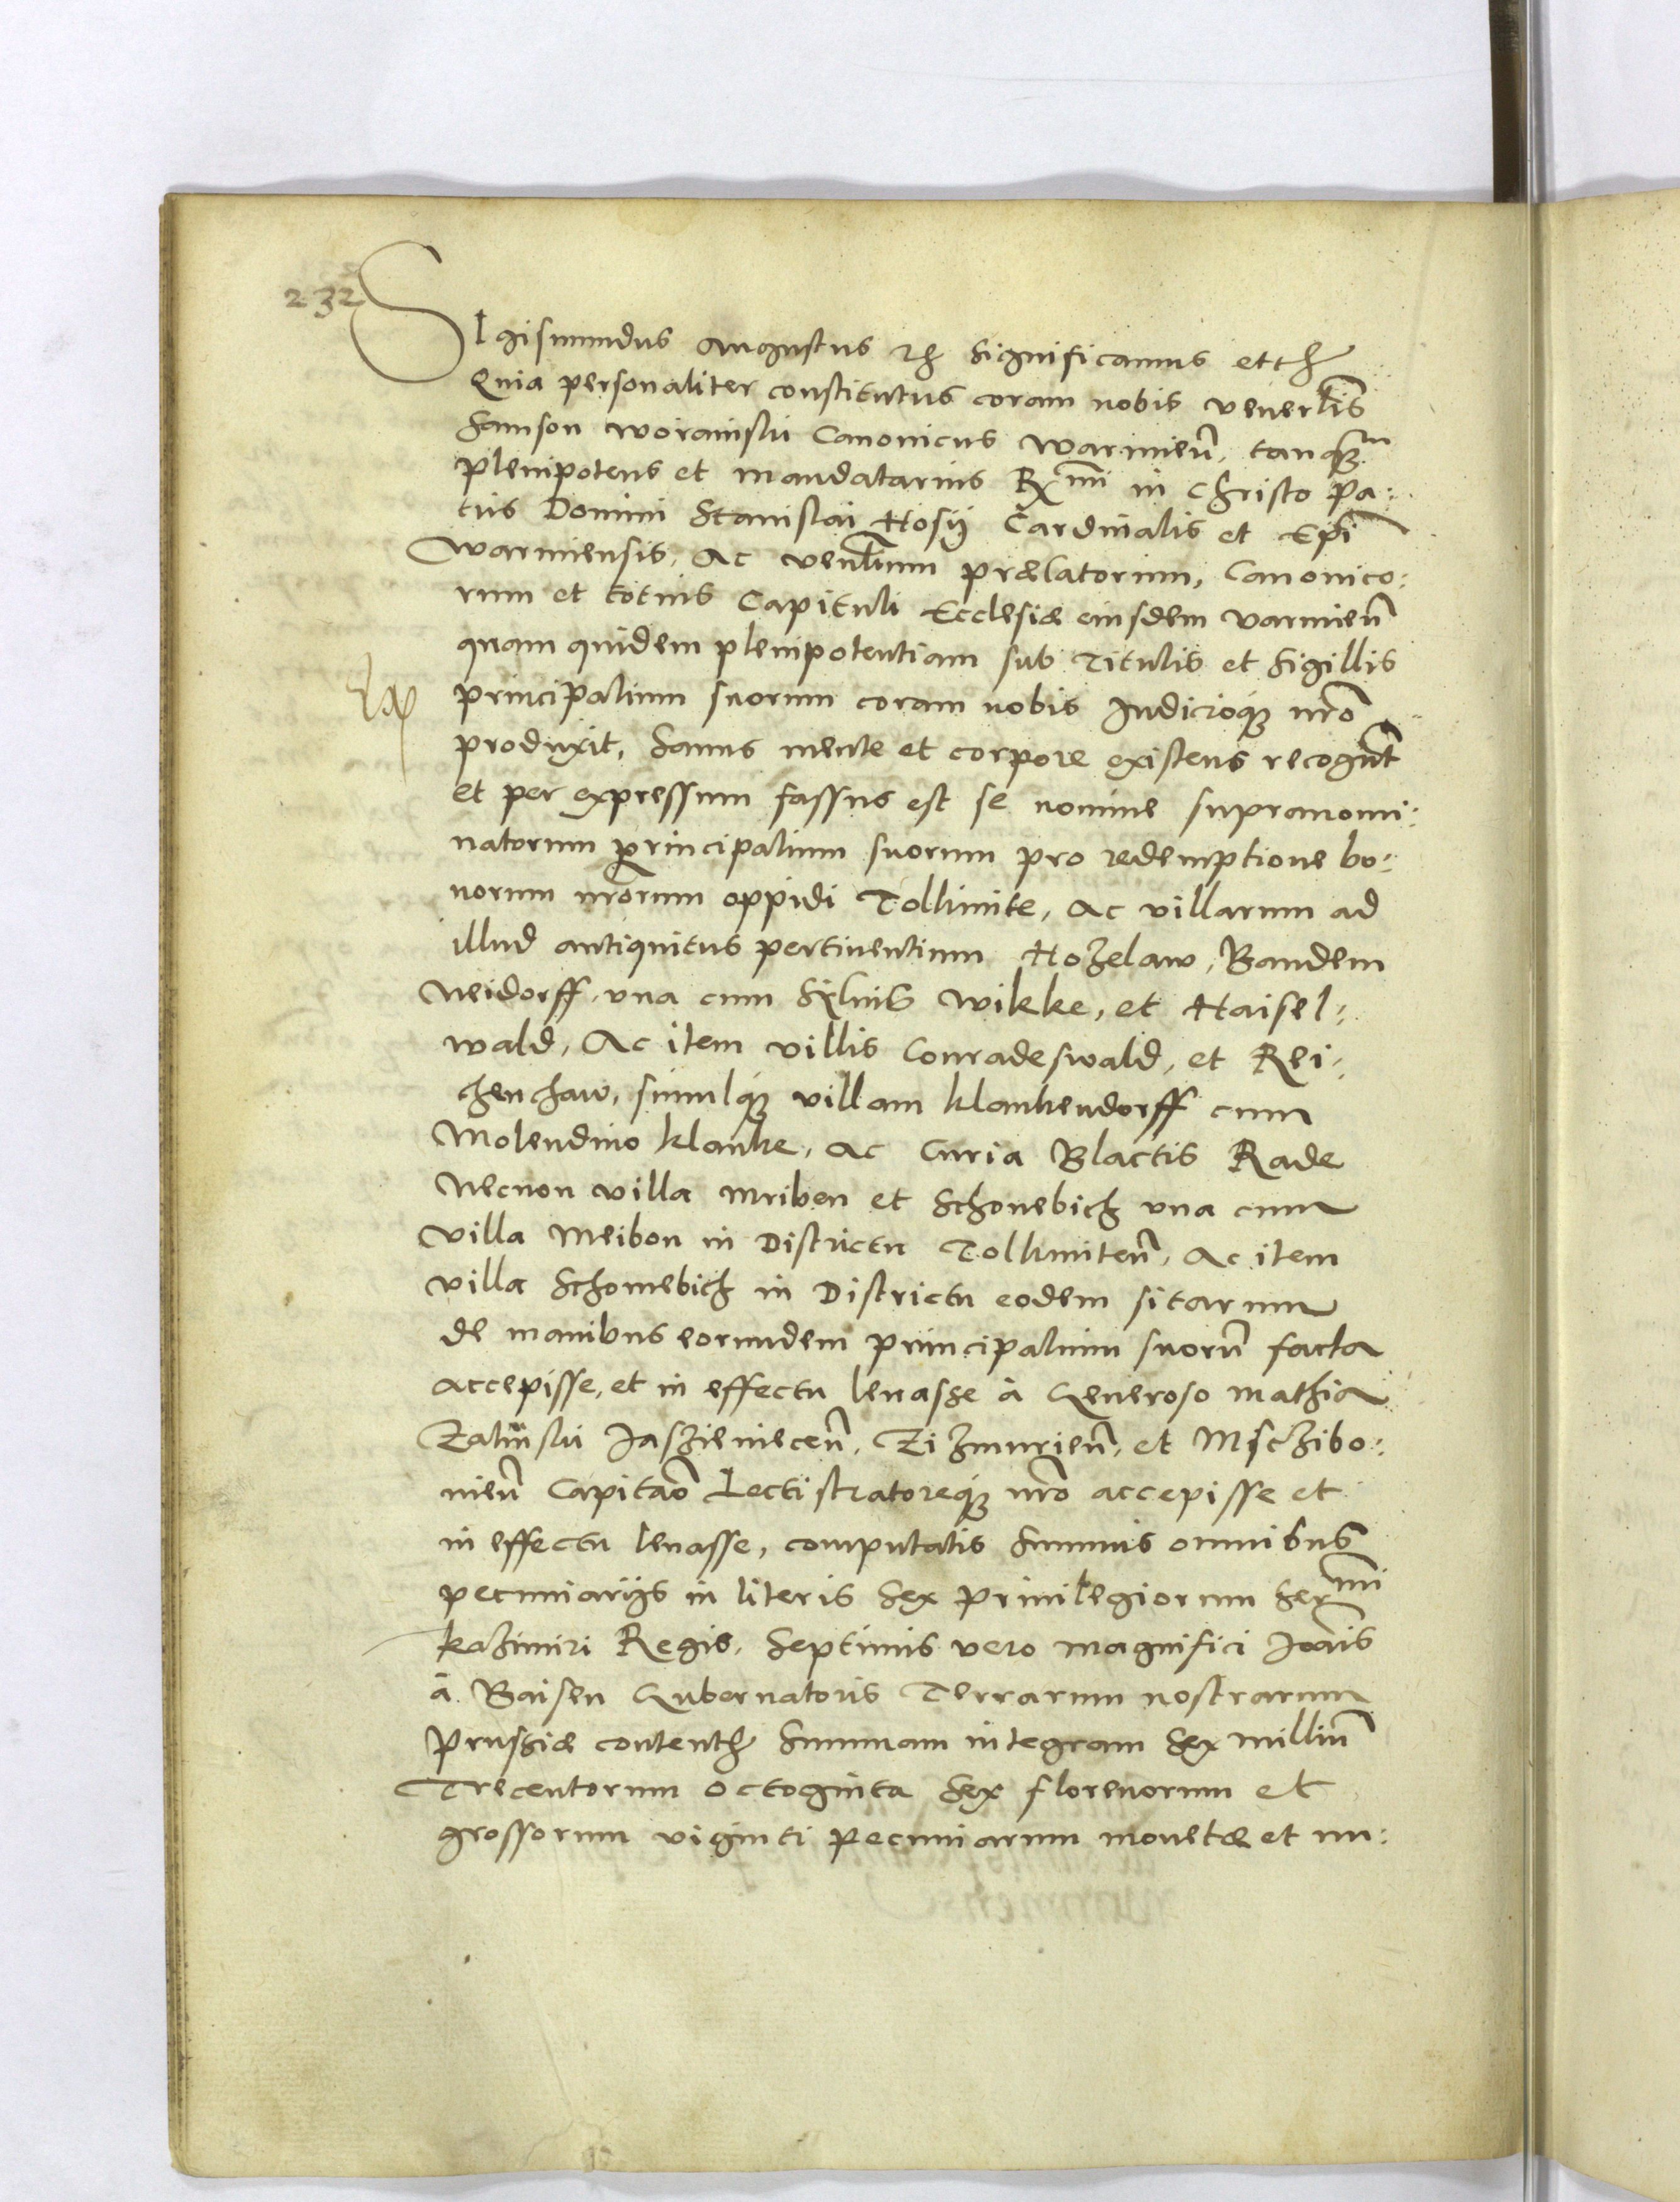 232
SIgismundus Augustus rex Significamus etc
Quia personaliter constitutus coram nobis venerlis
Samson Worainski Canonicus Warmien̄, tanq̃m
plenipotens et mandatarius Rx̃mi in Christo Pa:
tris Domini Stanislai Hosij Cardinalis et Ep̃i
Warmiensis, Ac Venlium prælatorum, Canonico:
rum et totius Capituli Ecclesiæ eiusdem Varmien̄
quam quidem plenipotentiam sub Titulis et Sigillis
principalium suorum coram nobis Iudicioq́ȝ nr̃o
produxit, Sanus mente et corpore existens recogñt
et per expressum fassus est se nomine supranomi:
natorum principalium suorum pro redemptione bo:
norum nr̃orum oppidi Tolkmite, Ac villarum ad
illud antiquitus pertinentium Hozelaw, Bandem
Neidorff, una cum Siluis Wikke, et Haisel:
wald, Ac item villis Conradeswald, et Rei:
chenchaw, simulq́ȝ villam Klankendorff cum
Molendino Klanke, Ac Curia Blactis Rade
Necnon villa Mriben et Schonebich una cum
Villa Meibon in Districtu Tolkmiten̄, Ac item
villa Schomebich in Districtu eodem sitarum
de manibus eorundem principalium suorū facta
accepisse, et in effectu levasse à Generoso Mathia
Zalinski Jaszieniecen̄, Zizmurien̄, et Msczibo:
nien̄ Capitaño Lectistratoreq́ȝ nr̃o accepisse et
in effectu levasse, computatis Summis omnibus
pecuniarijs in literis Sex Privilegiorum Sermi
Kazimiri Regis, Septimis vero Magnifici Joañis
à Baisen Gubernatoris Terrarum nostrarum
Prussiæ content̃ Summam integram Sex milliū
Trecentorum Octoginta Sex florenorum et
grossorum viginti Pecuniarum monetæ et nu: